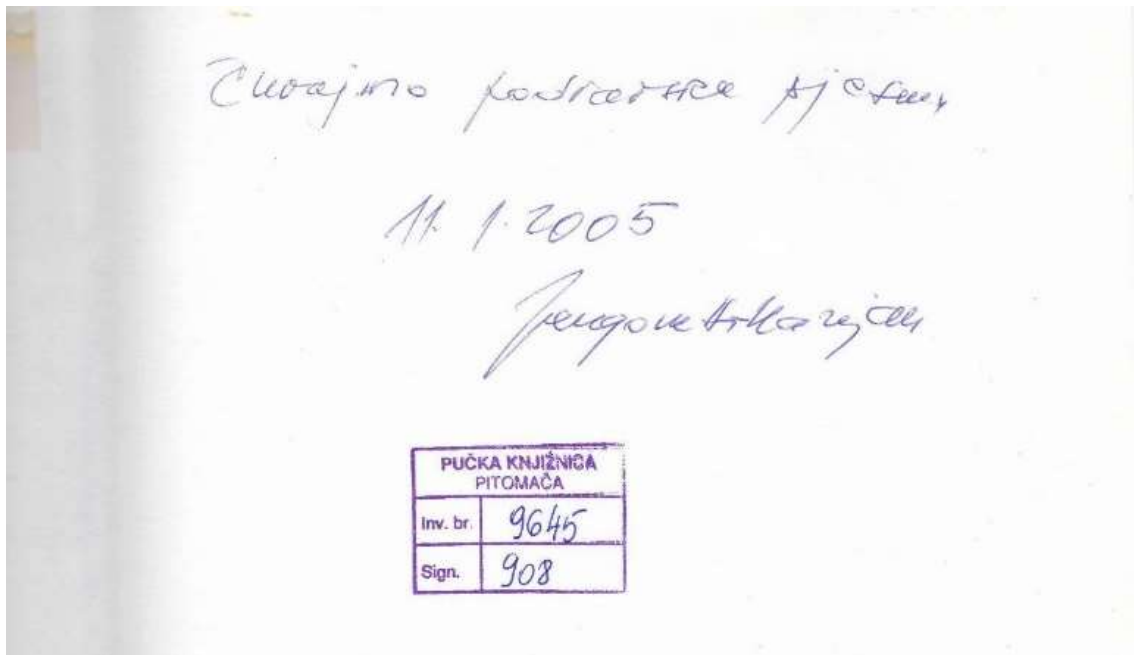 Čuvajmo podravsku pjesmu
11. 1. 2005
PUČKA KNJIŽNICA
PITOMAČA
Inv. br. 9645
Sign. 908